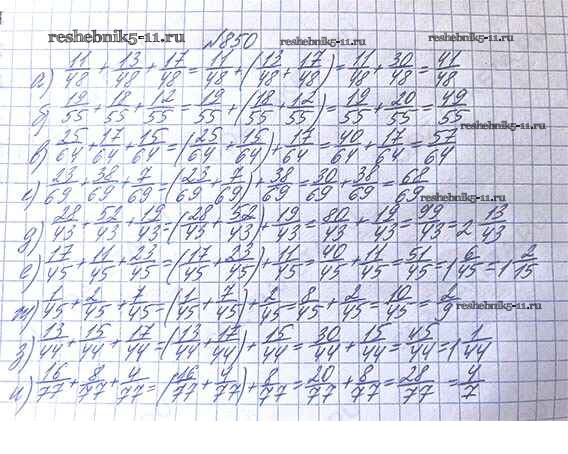 reshebnik5-11.ru
№850
reshebnik5-11.ru
reshebnik5-11.ru
а) 11/48 + 13/48 + 17/48 = 11/48 + (13/48 + 17/48) = 11/48 + 30/48 = 41/48
б) 19/55 + 18/55 + 12/55 = 19/55 + (18/55 + 12/55) = 19/55 + 20/55 = 49/55
reshebnik5-11.ru
в) 25/64 + 17/64 + 15/64 = (25/64 + 15/64) + 17/64 = 40/64 + 17/64 = 57/64
г) 23/69 + 38/69 + 7/69 = (23/69 + 7/69) + 38/69 = 30/69 + 38/69 = 68/69
reshebnik5-11.ru
д) 28/43 + 52/43 + 19/43 = (28/43 + 52/43) + 19/43 = 80/43 + 19/43 = 99/43 = 2 13/43
е) 17/45 + 11/45 + 23/45 = (17/45 + 23/45) + 11/45 = 40/45 + 11/45 = 51/45 = 1 6/45 = 1 2/15
ж) 1/45 + 2/45 + 7/45 = (1/45 + 7/45) + 2/45 = 8/45 + 2/45 = 10/45 = 2/9
reshebnik5-11.ru
з) 13/44 + 15/44 + 17/44 = (13/44 + 17/44) + 15/44 = 30/44 + 15/44 = 45/44 = 1 1/44
и) 16/77 + 8/77 + 4/77 = (16/77 + 4/77) + 8/77 = 20/77 + 8/77 = 28/77 = 4/7